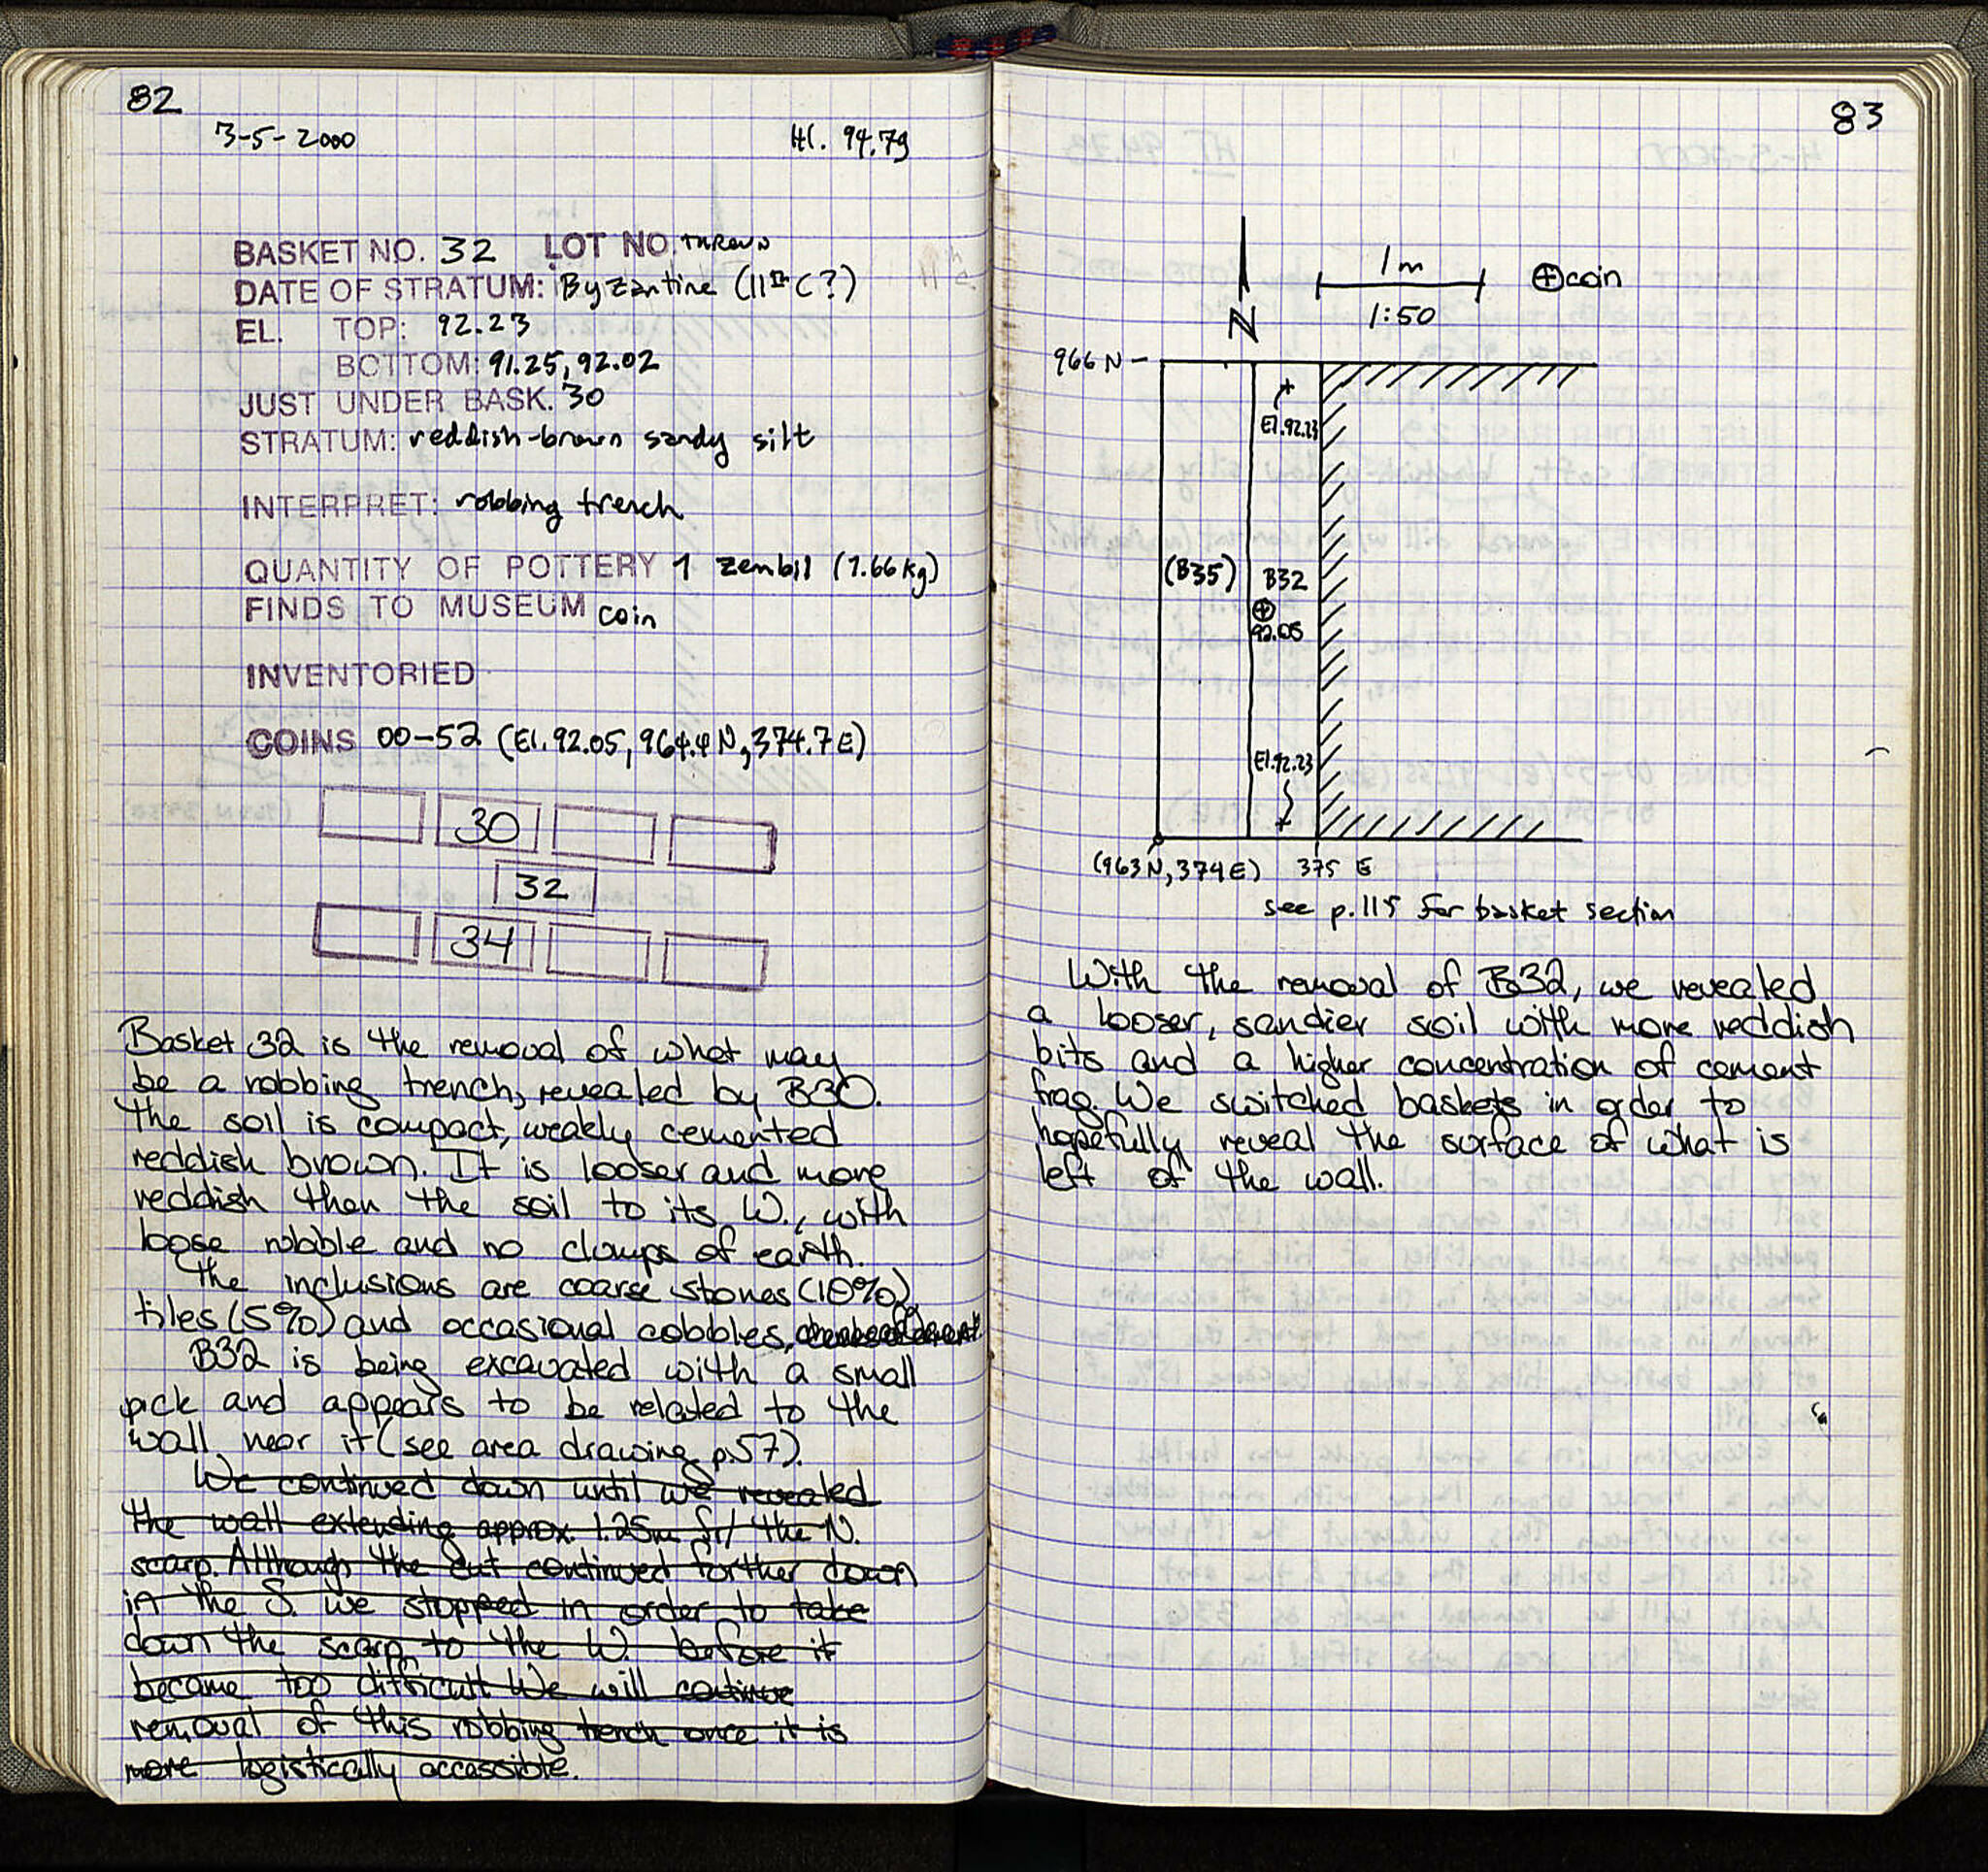 82
3-5-2000 HI. 94.79
BASKET NO. 32 LOT NO. THROWN
DATE OF STRATUM: Byzantine (11th C?)
EL. TOP: 92.23
BOTTOM: 91.25, 92.02
JUST UNDER BASK. 30
STRATUM: reddish-brown sandy silt
INTERPRET: robbing trench
QUANTITY OF POTTERY 1 zembil (1.66 kg)
FINDS TO MUSEUM coin
INVENTORIED
COINS 00-52 (El. 92.05, 964.4 N, 374.7 E)
30
32
34
Basket 32 is the removal of what may
be a robbing trench, revealed by B30.
The soil is compact, weakly cemented
reddish brown. It is looser and more
reddish then the soil to its W., with
loose rubble and no clumps of earth.
The inclusions are coarse stones (10%)
tiles (5%) and occasional cobbles,
B32 is being excavated with a small
pick and appears to be related to the
wall near it (see area drawing p.57).
We continued down until we revealed
the wall extending approx. 1.25m fr/ the N.
scarp. Although the cut continued further down
in the S. we stopped in order to take
down the scarp to the W. before it
became too difficult. We will continue
removal of this robbing trench once it is
more logistically accessible.
83
1m
⊕ coin
N
1:50
966 N
El. 92.23
(B35) B32
⊕
92.05
El. 92.23
(963 N, 374 E) 375 E
see p. 115 for basket section
With the removal of B32, we revealed
a looser, sandier soil with more reddish
bits and a higher concentration of cement
frag. We switched baskets in order to
hopefully reveal the surface of what is
left of the wall.